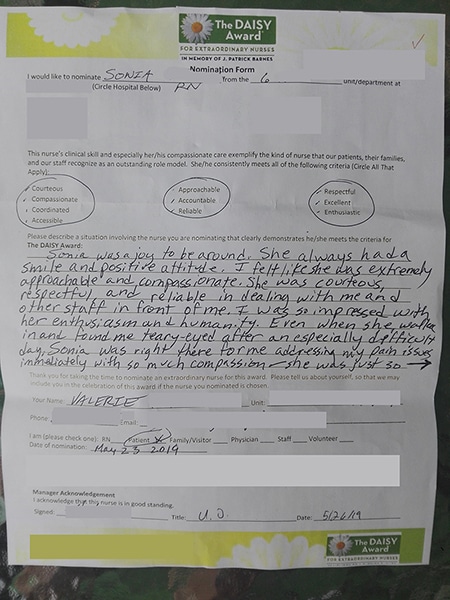 The DAISY
Award™
FOR EXTRAORDINARY NURSES
IN MEMORY OF J. PATRICK BARNES
Nomination Form
I would like to nominate SONIA RN from the 6 unit/department at
(Circle Hospital Below)
This nurse's clinical skill and especially her/his compassionate care exemplify the kind of nurse that our patients, their families,
and our staff recognize as an outstanding role model. She/he consistently meets all of the following criteria (Circle All That
Apply):
Courteous Approachable Respectful
Compassionate Accountable Excellent
Coordinated Reliable Enthusiastic
Accessible
Please describe a situation involving the nurse you are nominating that clearly demonstrates he/she meets the criteria for
The DAISY Award:
Sonia was a joy to be around. She always had a
smile and positive attitude. I felt like she was extremely
approachable and compassionate. She was courteous,
respectful, and reliable in dealing with me and
other staff in front of me. I was so impressed with
her enthusiasm and humanity. Even when she walked
in and found me teary-eyed after an especially difficulty
day, Sonia was right there for me addressing my pain issues
immediately with so much compassion - she was just so →
Thank you for taking the time to nominate an extraordinary nurse for this award. Please tell us about yourself, so that we may
include you in the celebration of this award if the nurse you nominated is chosen.
Your Name: VALERIE Unit:
Phone Email:
I am (please check one): RN Patient ✓ Family/Visitor Physician Staff Volunteer
Date of nomination: May 23 2019
Manager Acknowledgement
I acknowledge that this nurse is in good standing.
Signed: Title: U.D. Date: 5/26/19
The DAISY
Award™
FOR EXTRAORDINARY NURSES